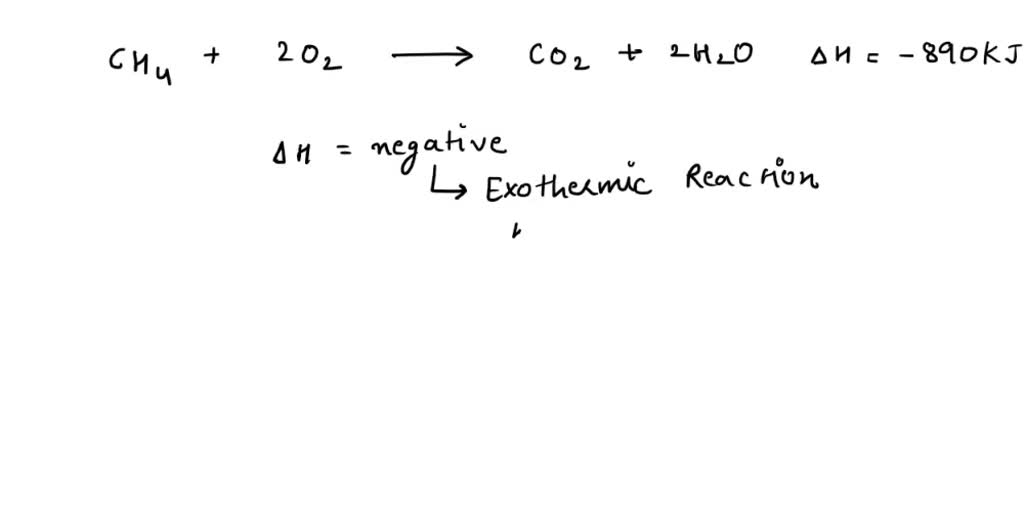 CH₄ + 2O₂ ⟶ CO₂ + 2H₂O ΔH = -890KJ
ΔH = negative
↳ Exothermic Reaction